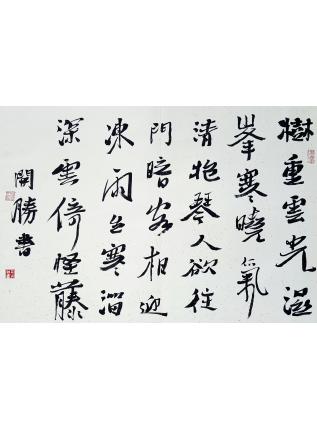 樹重雲光濕
峯寒曉氣
清抱琴人欲往
門暗客相迎
凍雨寒溜
深雲倚怪藤
開勝書